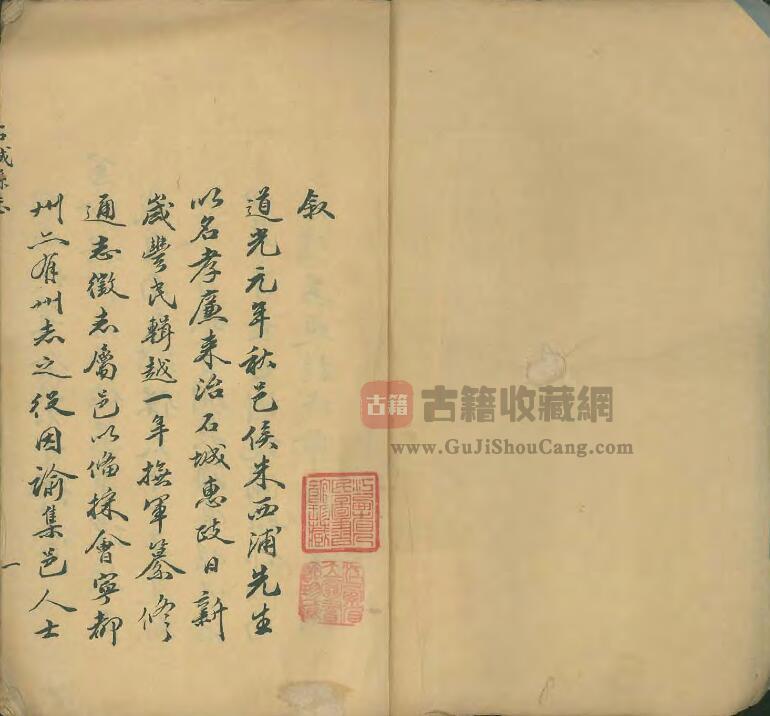 叙
道光元年秋邑侯朱西浦先生
以名孝廉来治石城惠政日新
歲豐民輯越一年撫軍纂修
通志徵志屬邑以俻採會寧都
州亦有州志之役因諭集邑人士
一
石城縣志
古籍
古籍收藏網
www.GuJiShouCang.com